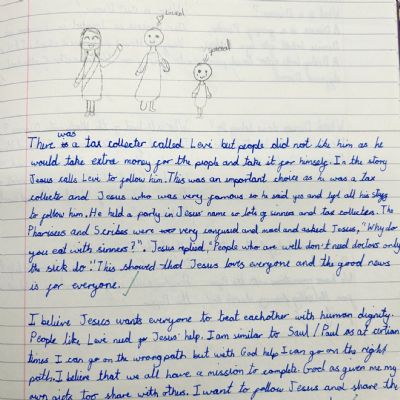 There was a tax collecter called Levi but people did not like him as he
would take extra money for the people and take it for himself. In the story
Jesus calls Levi to follow him. This was an important choice as he was a tax
collecter and Jesus who was very famous so he said yes and left all his
to follow him. He held a party in Jesus' name so lots of sinners and tax collecters. The
Pharisees and Scribes were very confused and mad and asked Jesus, "Why do
you eat with sinners?". Jesus replied, "People who are well don't need doctors only
the sick do." This showed that Jesus loves everyone and the good news
is for everyone.
I believe Jesus wants everyone to treat eachother with human dignity.
People like Levi need Jesus' help. I am similar to Saul/Paul as at certian
times I can go on the wrong path but with God help I can go on the right
path. I believe that we all have a mission to complete. God as given me my
own gifts too share with others. I want to follow Jesus and share the